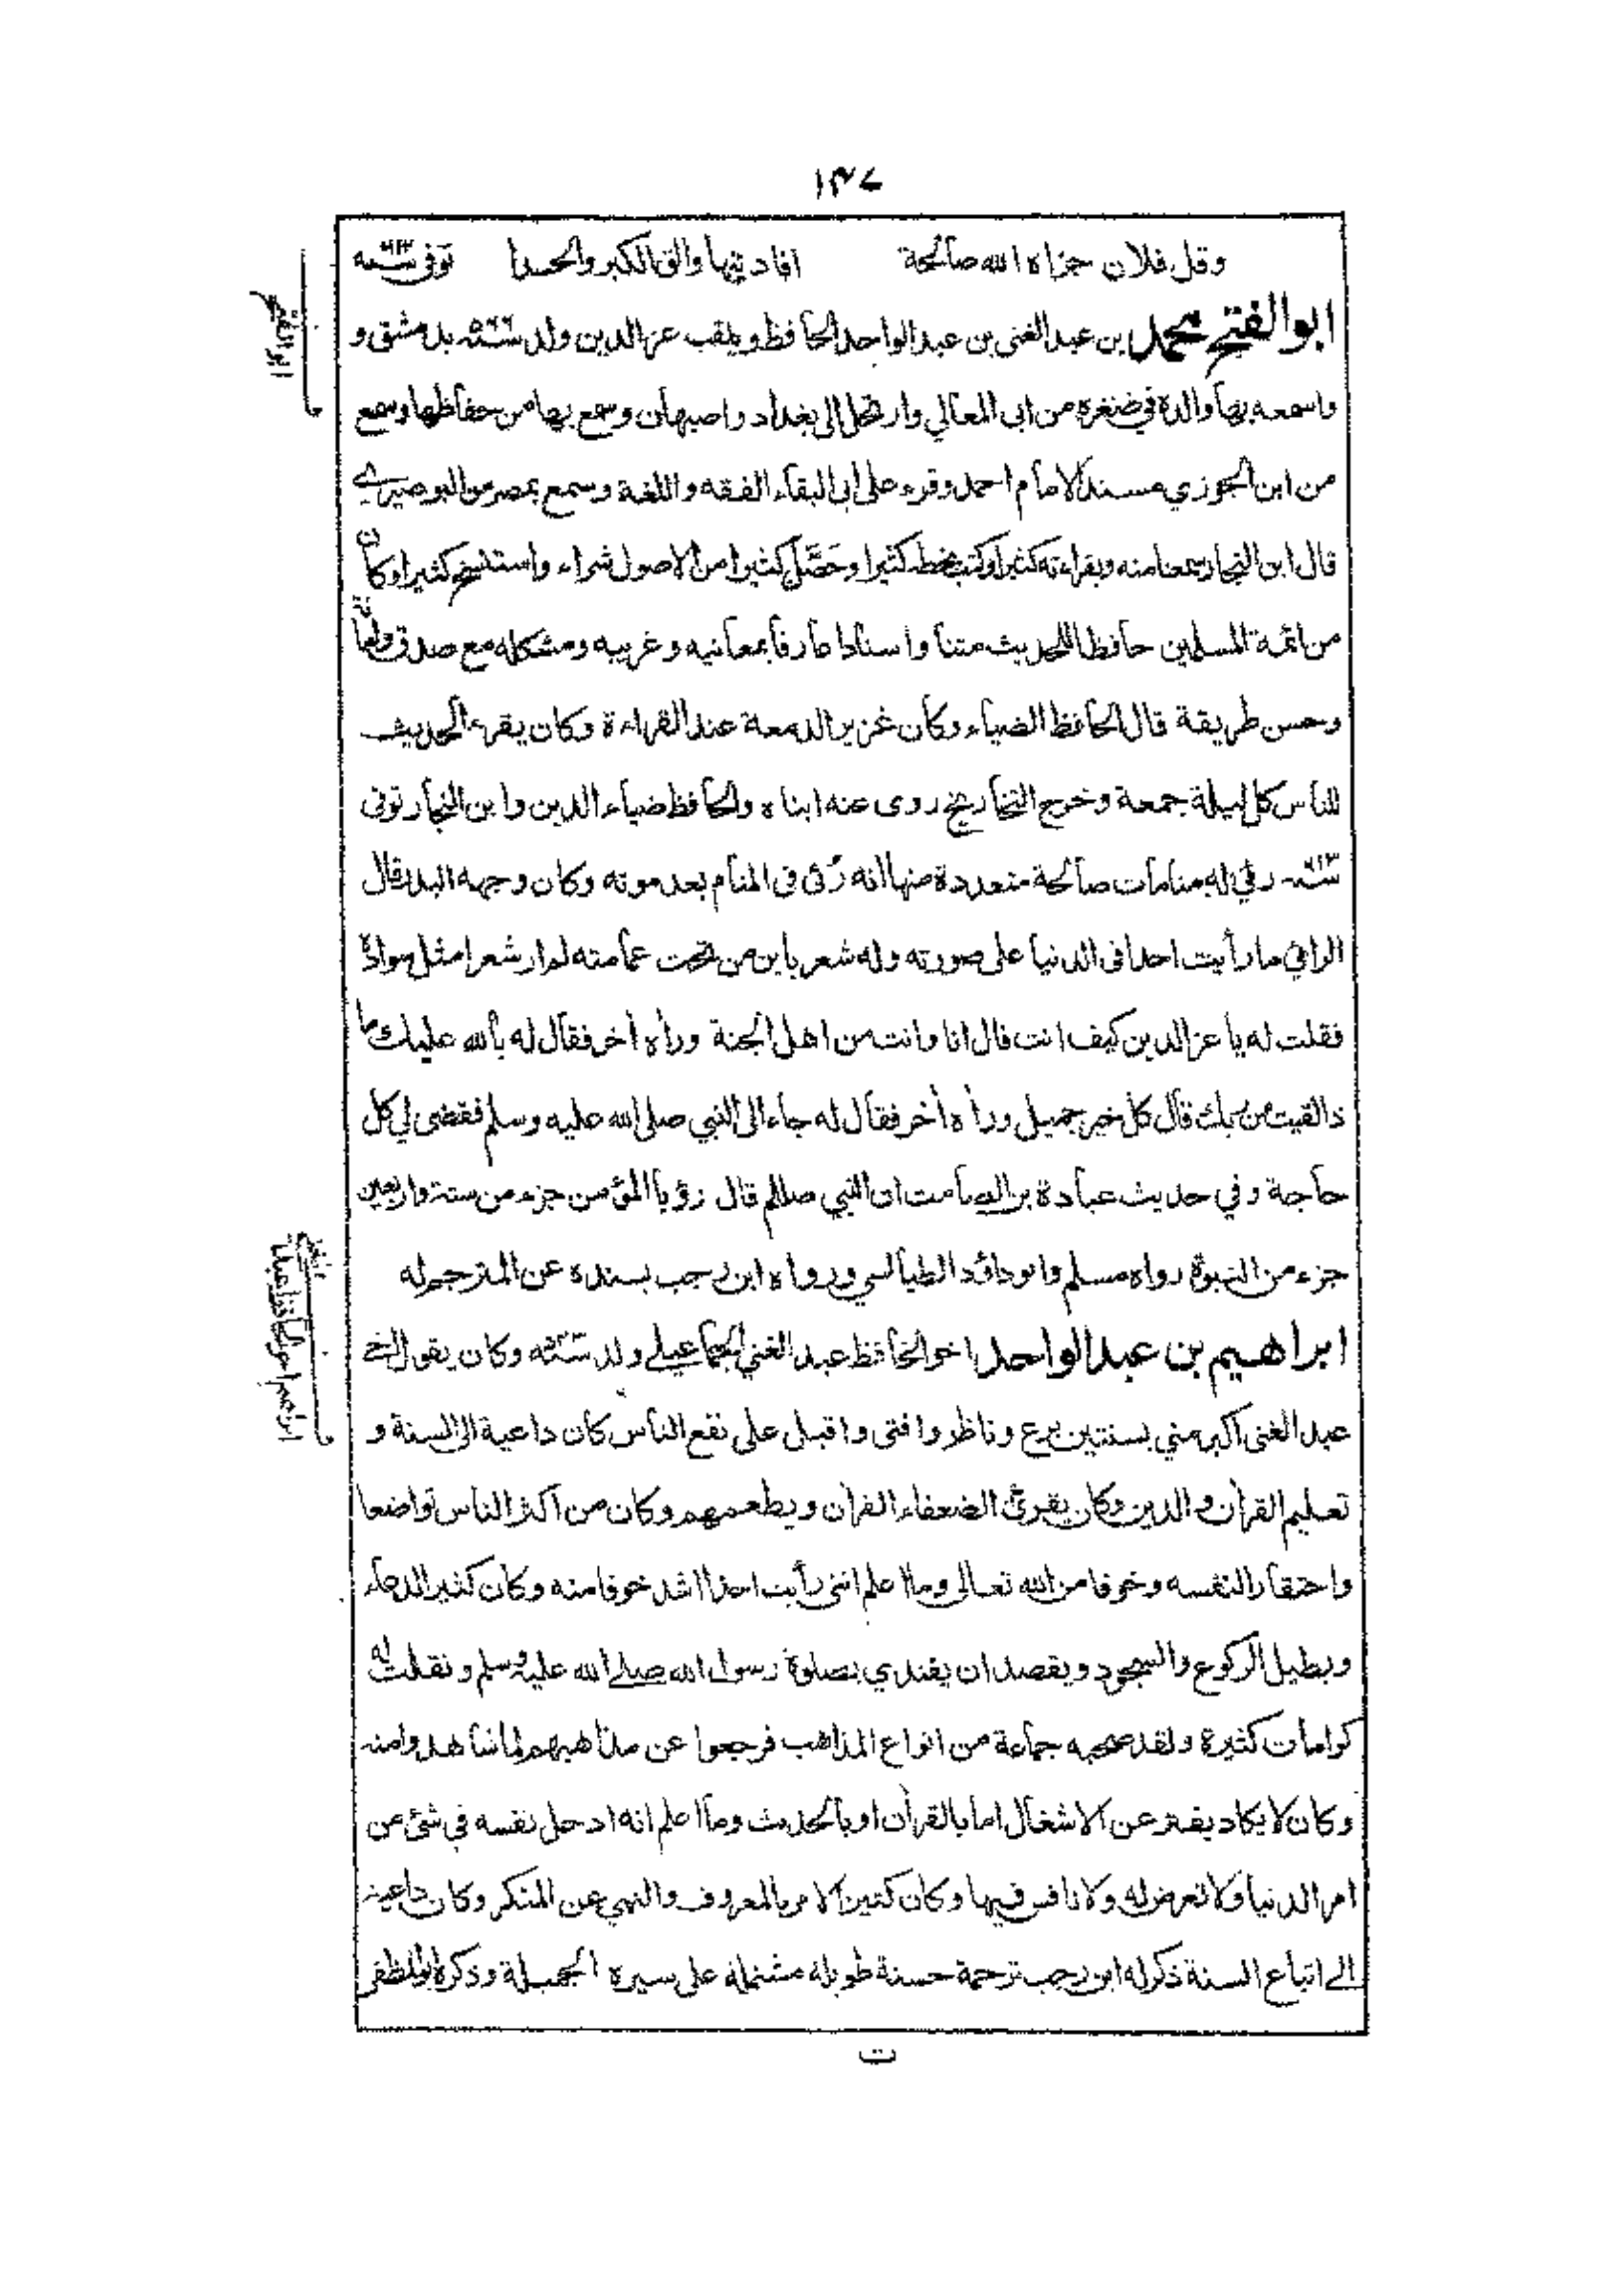 ١٣٧
وقل فلان جزاه الله صالحة افادنيها والق الكبر والحسدا توفى سنة ٦١٣
ابو الفتح محمد بن عبد الغنى بن عبد الواحد الحافظ ويلقب عز الدين ولد سنة ٥٦٦ بدمشق و
واسمعه بها والده في صغره من ابى المعالي وارتحل الى بغداد واصبهان وسمع بها من حفاظها وسمع
من ابن الجوزي مسند الامام احمد وقرء على ابى البقاء الفقه واللغة وسمع بمصر من البوصيري
قال ابن النجار سمعنا منه وبقراءته كثيرا وكتب بخطه كثيرا وحَصَّل كثيرا من الاصول شراء واستنسخ كثيرا وكان
من ائمة المسلمين حافظا للحديث متنا واسنادا عارفا بمعانيه وغريبه ومشكله مع صدق وامانة
وحسن طريقة قال الحافظ الضياء وكان غزير الدمعة عند القراءة وكان يقرء الحديث
للناس كل ليلة جمعة وخرج التخاريج روى عنه ابناه والحافظ ضياء الدين وابن النجار توفى
سنة ٦١٣ رئي له منامات صالحة متعددة منها انه رُئى فى المنام بعد موته وكان وجهه البدر قال
الرائي ما رأيت احدا فى الدنيا على صورته وله شعر باين من تحت عمامته لم ار شعرا مثل سواده
فقلت له يا عز الدين كيف انت قال انا وانت من اهل الجنة ورأه أخر فقال له بالله عليك ما
ذا لقيت من ربك قال كل خير جميل ورأه أخر فقال له جاء الى النبي صلى الله عليه وسلم فقضى لي كل
حاجة وفي حديث عبادة بن الصامت ان النبي صللم قال رؤيا المؤمن جزء من ستة واربعين
جزء من النبوة رواه مسلم وابو داؤد الطيالسي ورواه ابن رجب بسنده عن المترجم له
ابراهيم بن عبد الواحد اخو الحافظ عبد الغني الجماعيلے ولد سنة ٥٤٣ وكان يقول اخے
عبد الغنى اكبر مني بسنتين برع وناظر وافتى واقبل على نفع الناس كان داعية الى السنة و
تعليم القرأن والدين وكان يقرئ الضعفاء القرأن ويطعمهم وكان من اكثر الناس تواضعا
واحتقارا لنفسه وخوفا من الله تعالى وما اعلم اننى رأيت احدا اشد خوفا منه وكان كثير الدعاء
ويطيل الركوع والسجود ويقصد ان يقتدي بصلوة رسول الله صلے الله عليه وسلم ونقلت له
كرامات كثيرة ولقد صحبه جماعة من انواع المذاهب فرجعوا عن مذاهبهم لما شاهدوا منه
وكان لا يكاد يفتر عن الاشغال اما بالقرأن او بالحديث وما اعلم انه ادخل نفسه في شئ من
امر الدنيا ولا تعرض له ولا نافس فيها وكان كثير الامر بالمعروف والنهي عن المنكر وكان داعية
الے اتباع السنة ذكر له ابن رجب ترجمة حسنة طويلة مشتملة على سيره الجميلة وذكره ابو المظفر
ت
ابو الفتح
ابراهيم اخو الحافظ عبد الغني